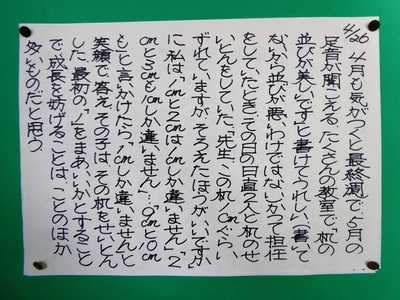 4/26 4月も気がつくと最終週で、5月の
足音が聞こえる。たくさんの教室で、「机の
並びが美しいです」と書けてうれしい。書いて
ないから並びが悪いわけではない。かつて担任
をしていたとき、その日の日直2人と机のせ
いとんをしていた。「先生、この机1cmぐらい
ずれていますが、そろえたほうがいいですか」
に私は「1cmと2cmは1cmしか違いません」「2
cmと3cmも1cmしか違いません…。9cmと10cm
も」と言いかけたら「1cmしか違いません」と
笑顔で答え、その子は、その机をせいとん
した。最初の「1」をまあいいかとすること
で、成長を妨げることは、ことのほか
多いものだと思う。